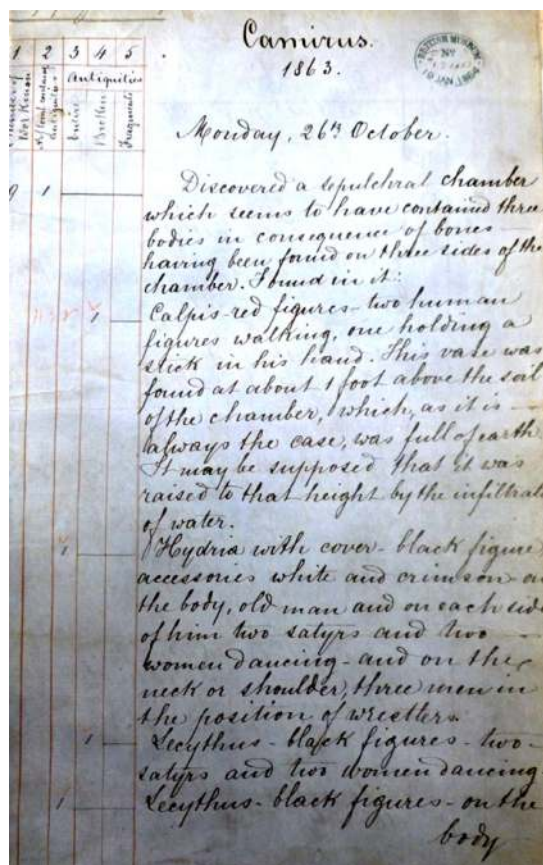 Camirus.
1863.
BRITISH MUSEUM
No
19 JAN. 1864
1 2 3 4 5
Antiquities
Number of Workmen
Entire
Broken
Fragments
Monday, 26th October.
9 1
Discovered a sepulchral chamber
which seems to have contained three
bodies in consequence of bones
having been found on three sides of the
chamber. Found in it:
1 Calpis-red figures-two human
figures walking, one holding a
stick in his hand. This vase was
found at about 1 foot above the soil
of the chamber, which, as it is
always the case, was full of earth.
It may be supposed that it was
raised to that height by the infiltrat
of water.
1 Hydria with cover-black figure
accessories white and crimson-on
the body, old man and on each sid
of him two satyrs and two
women dancing-and on the
neck or shoulder, three men in
the position of wrestlers.
1 Lecythus-black figures-two
satyrs and two women dancing
1 Lecythus-black figures-on the
body